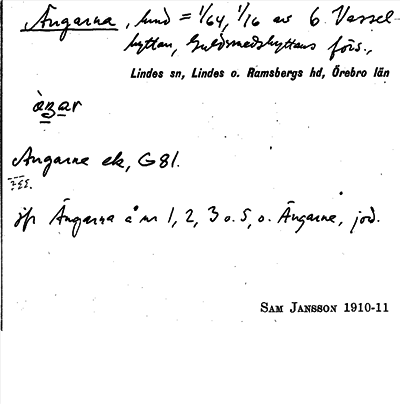 Ängarna, hmd = 1/64, 1/16 av 6 Vassel-
hyttan, Guldsmedshyttans förs.,
Lindes sn, Lindes o. Ramsbergs hd, Örebro län
àŋar
Ängarne ek, G 81.
jfr Ängarna å nr 1, 2, 3 o. 5, o. Ängarne, jord.
SAM JANSSON 1910-11